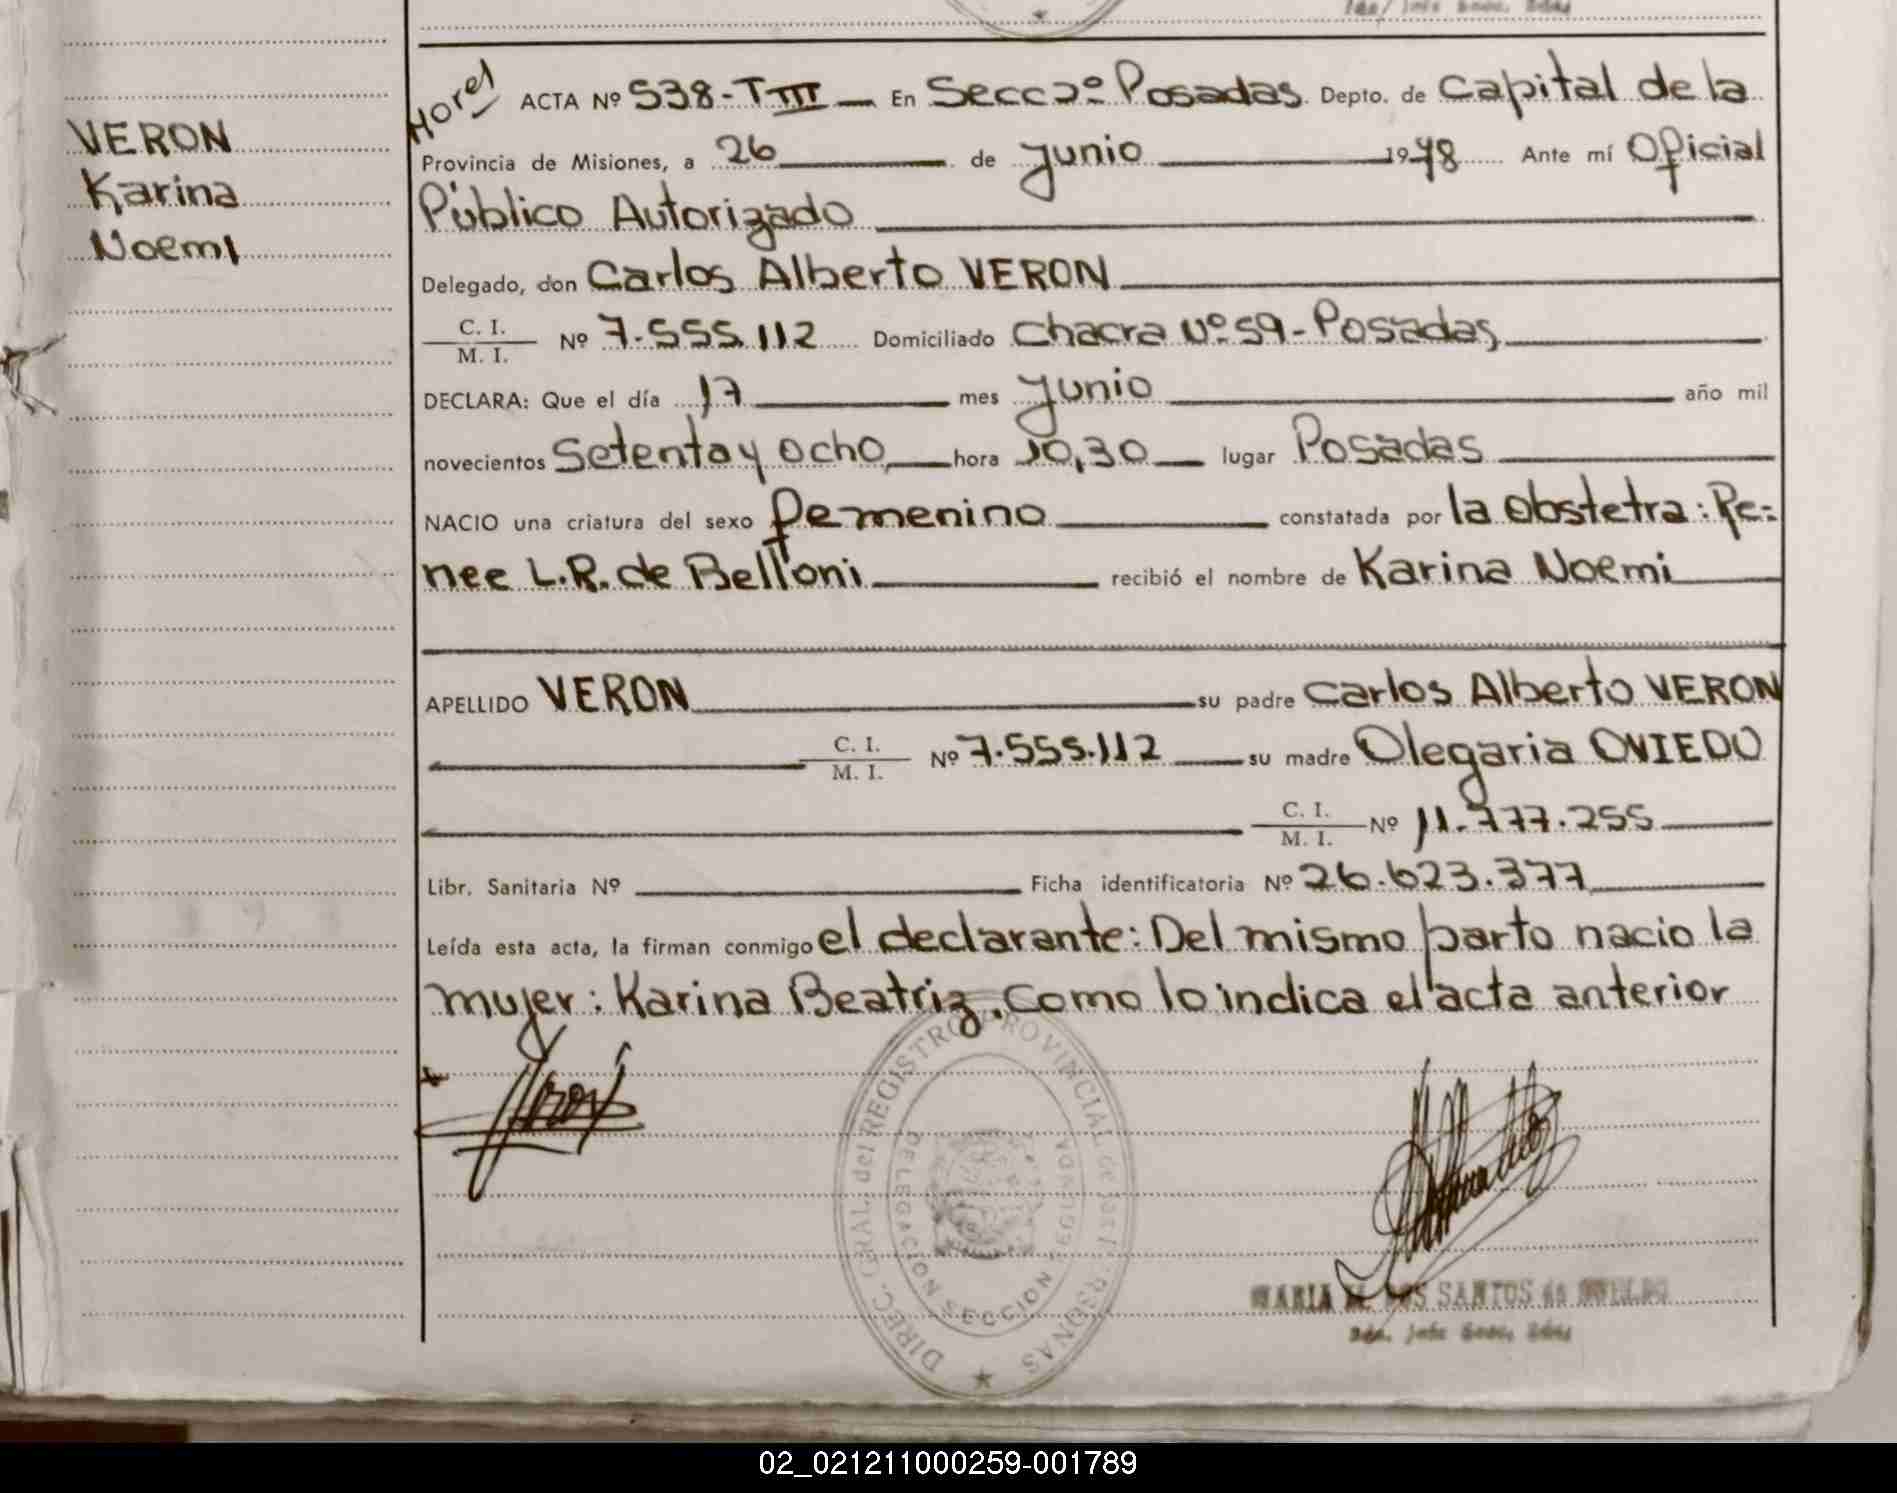 VERON
Karina
Noemi
Horel
ACTA Nº 538-TIII En Secc 2º Posadas Depto. de Capital de la
Provincia de Misiones, a 26 de Junio 1978 Ante mí Oficial
Público Autorizado
Delegado, don Carlos Alberto VERON
C. I.
M. I. Nº 7.555.112 Domiciliado Chacra Nº 59-Posadas
DECLARA: Que el día 17 mes Junio año mil
novecientos Setenta y ocho hora 10,30 lugar Posadas
NACIO una criatura del sexo femenino constatada por la obstetra: Re=
nee L.R. de Belloni recibió el nombre de Karina Noemi
APELLIDO VERON su padre Carlos Alberto VERON
C. I.
M. I. Nº 7.555.112 su madre Olegaria OVIEDO
C. I.
M. I. Nº 11.777.255
Libr. Sanitaria Nº Ficha identificatoria Nº 26.623.377
Leída esta acta, la firman conmigo el declarante: Del mismo parto nacio la
mujer: Karina Beatriz. Como lo indica el acta anterior
DIREC. GRAL. del REGISTRO PROVINCIAL de las PERSONAS
DELEGACION SECCION
MARIA DOS SANTOS de
02_021211000259-001789